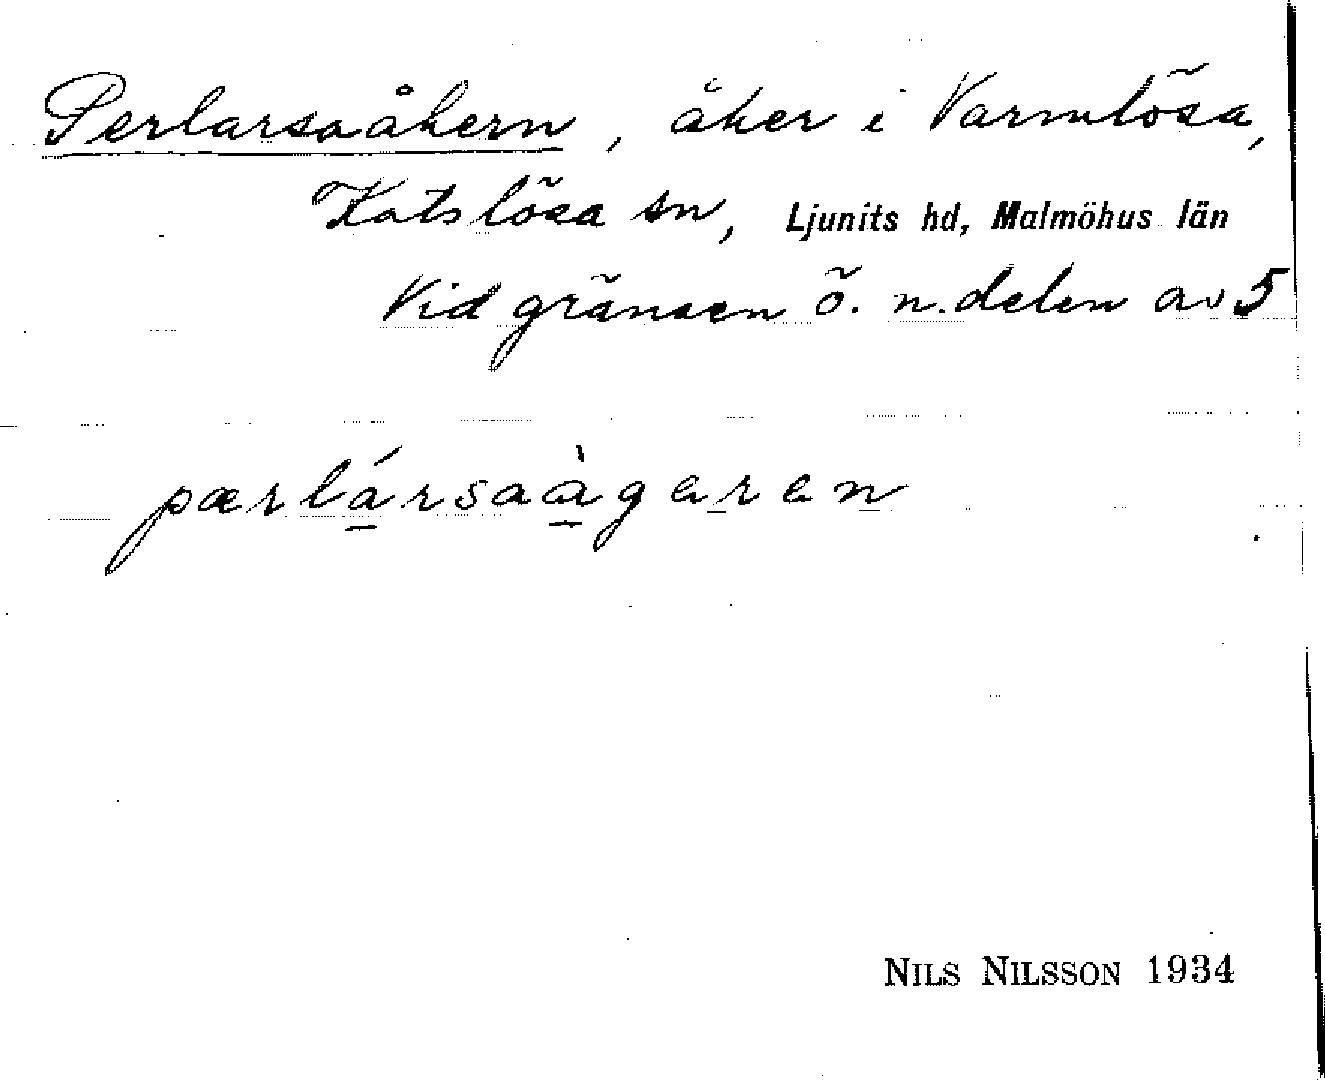 Perlarsaåkern, åker i Varmlösa,
Katslösa sn, Ljunits hd, Malmöhus län
Vid gränsen ö. n. delen av 5
pærlársaàgeren
NILS NILSSON 1934